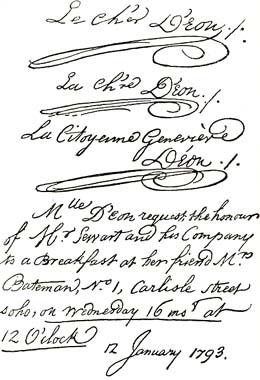 Le chᵉʳ D'Eon ./.
La chʳᵉ D'Eon ./.
La Citoyenne Geneviève
Déon ./.
Mˡˡᵉ D'Eon request the honour
of Mʳ Sewart and his Company
to a Breakfast at her friend Mʳˢ
Bateman, N.º 1, Carlisle street
soho, on Wednesday 16 insᵗ at
12 O'clock
12 January 1793.